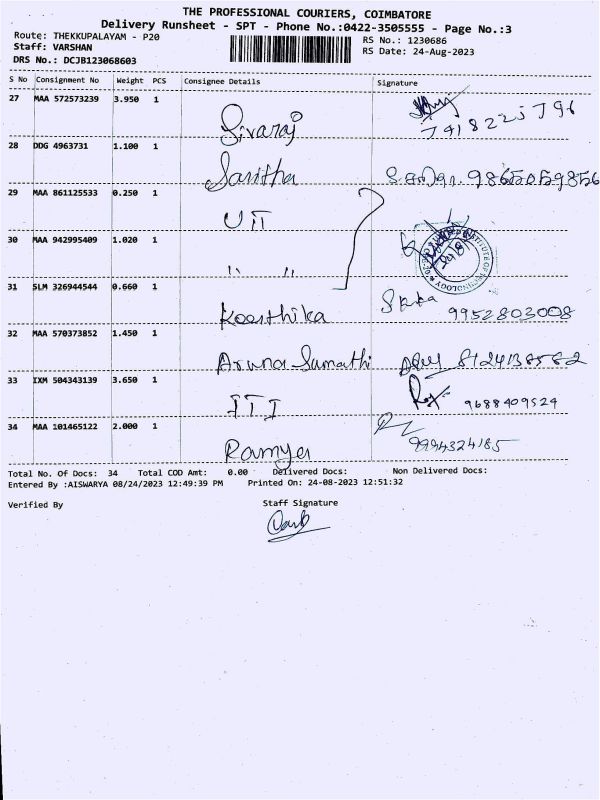 THE PROFESSIONAL COURIERS, COIMBATORE
Delivery Runsheet - SPT - Phone No.:0422-3505555 - Page No.:3
Route: THEKKUPALAYAM - P20
RS No.: 1230686
Staff: VARSHAN
RS Date: 24-Aug-2023
DRS No.: DCJB123068603
S No Consignment No Weight PCS Consignee Details Signature
27 MAA 572573239 3.950 1 Sivaraj
28 DDG 4963731 1.100 1 Saritha 9865059856
29 MAA 861125533 0.250 1 UIT
30 MAA 942995409 1.020 1 " "
INSTITUTE OF TECHNOLOGY
31 SLM 326944544 0.660 1 Keerthika 9952803008
32 MAA 570373852 1.450 1 Aruna Sumathi 8124138582
33 IXM 504343139 3.650 1 ITI 9688409524
34 MAA 101465122 2.000 1 Ramya 9994324185
Total No. Of Docs: 34 Total COD Amt: 0.00 Delivered Docs: Non Delivered Docs:
Entered By :AISWARYA 08/24/2023 12:49:39 PM Printed On: 24-08-2023 12:51:32
Verified By Staff Signature